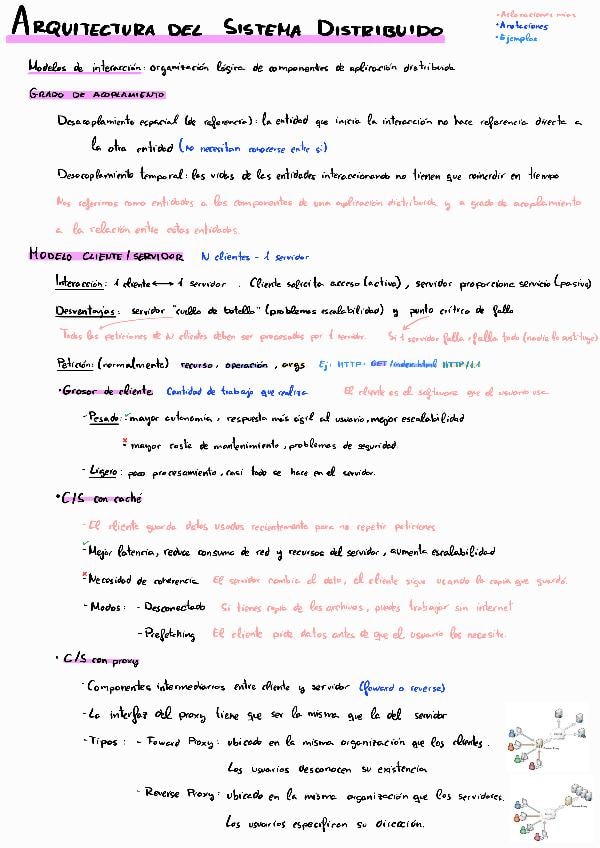 ARQUITECTURA DEL SISTEMA DISTRIBUIDO
• Aclaraciones mías
• Anotaciones
• Ejemplos
Modelos de interacción: organización lógica de componentes de aplicación distribuida
GRADO DE ACOPLAMIENTO
Desacoplamiento espacial (de referencia): la entidad que inicia la interacción no hace referencia directa a
la otra entidad (no necesitan conocerse entre sí)
Desacoplamiento temporal: las vidas de las entidades interaccionando no tienen que coincidir en tiempo
Nos referimos como entidades a los componentes de una aplicación distribuida y a grado de acoplamiento
a la relación entre estas entidades.
MODELO CLIENTE/SERVIDOR N clientes - 1 servidor
Interacción: 1 cliente ↔ 1 servidor. Cliente solicita acceso (activo), servidor proporciona servicio (pasivo)
Desventajas: servidor "cuello de botella" (problemas escalabilidad) y punto crítico de fallo
Todas las peticiones de N clientes deben ser procesadas por 1 servidor. Si 1 servidor falla, falla todo (nadie lo sustituye)
Petición: (normalmente) recurso, operación, args Ej: HTTP: GET /index.html HTTP/1.1
• Grosor de cliente Cantidad de trabajo que realiza El cliente es el software que el usuario usa
- Pesado: ✓ mayor autonomía, respuesta más ágil al usuario, mejor escalabilidad
x mayor coste de mantenimiento, problemas de seguridad.
- Ligero: poco procesamiento, casi todo se hace en el servidor.
• C/S con caché
- El cliente guarda datos usados recientemente para no repetir peticiones
✓ Mejor latencia, reduce consumo de red y recursos del servidor, aumenta escalabilidad
x Necesidad de coherencia El servidor cambia el dato, el cliente sigue usando la copia que guardó.
- Modos: - Desconectado Si tienes copia de los archivos, puedes trabajar sin internet
- Prefetching El cliente pide datos antes de que el usuario los necesite.
• C/S con proxy
- Componentes intermediarios entre cliente y servidor (foward o reverse)
- La interfaz del proxy tiene que ser la misma que la del servidor
- Tipos: - Foward Proxy: ubicado en la misma organización que los clientes.
Los usuarios desconocen su existencia
- Reverse Proxy: ubicado en la misma organización que los servidores.
Los usuarios especifican su dirección.